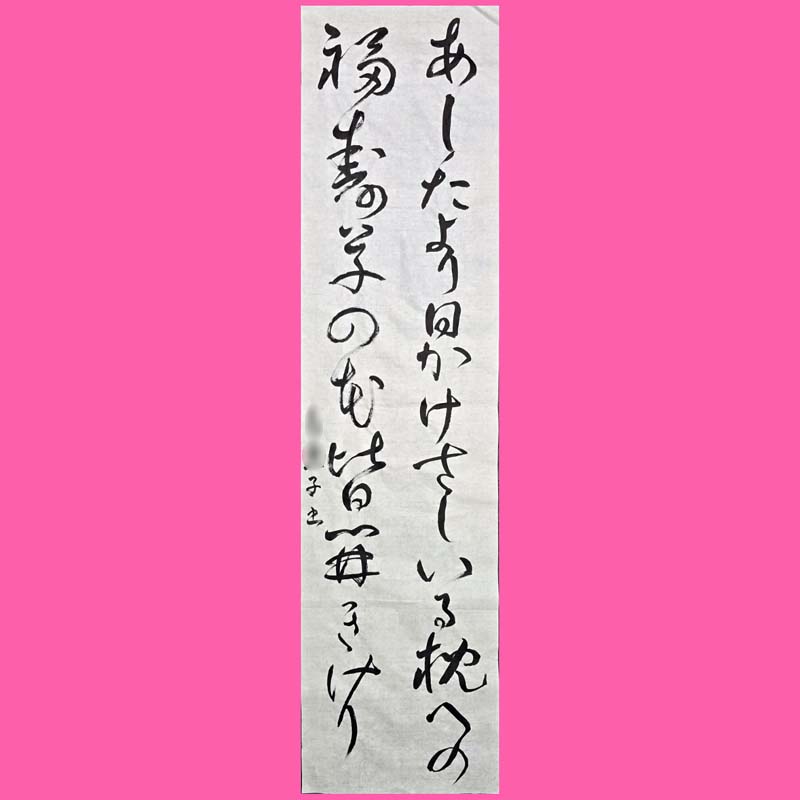 あしたより日かけさしいる枕への
福寿草の花皆開きけり
子書